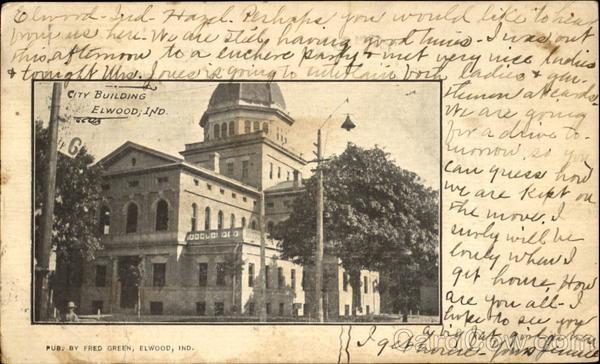 Elwood - Ind - Hazel. Perhaps you would like to hear
from us here. We are still having good times. I was out
this afternoon to a euchere party & met very nice ladies
& tonight Mrs. Jones is going to entertain both ladies & gen-
tlemen at cards.
We are going
for a drive to-
morrow so you
can guess how
we are kept on
the move. I
surely will be
lonely when I
get home. How
are you all - I
hope to see my
big fat girl when
I get home.
CITY BUILDING
ELWOOD, IND.
G
PUB. BY FRED GREEN, ELWOOD, IND.
CardCow.com